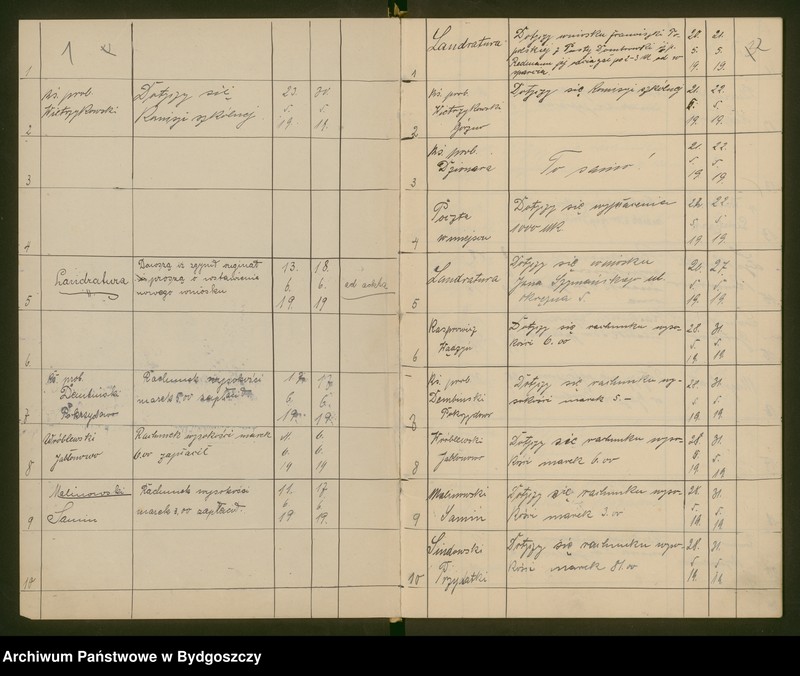 1
1
2
Ks. prob.
Wietrzykowski
Dotyczy się
Komisji szkolnej.
23.
5.
19.
30.
5.
19.
3
4
5
Landratura
Donoszą iż zginął orginał
proszą o wstawienie
nowego wniosku
13.
6.
19
18.
6.
19
ad acta
6
7
Ks. prob.
Dembiński
Pokrzydowo
Rachunek wysokości
marek
6.
6.
8
Wróblewski
Jabłonowo
Rachunek wysokości marek
6.00 zapłacić
6.
19
6.
6.
19
9
Malinowski
Samin
Rachunek wysokości
marek 3.00 zapłacić.
11.
6.
19
17.
6.
19.
10
1
Landratura
Dotyczy wniosku
28.
5.
19.
21.
5.
19.
2
Ks. prob.
Wietrzykowski
Górzno
Dotyczy się Komisji szkolnej
21.
19.
22.
5.
19.
3
Ks. prob.
To samo!
21.
5.
19
22.
5.
19.
4
Poczta
w miejscu
Dotyczy się wypłacenia
1000 Mk
22.
5.
19
22.
5.
19.
5
Landratura
Dotyczy się wniosku
Jana Szymańskiego
okręgu 5.
5.
19.
27.
5.
19
6
Dotyczy się rachunku wyso-
kości 6.00
28.
5.
19
31.
5.
19.
7
Ks. prob.
Dembinski
Pokrzydowo
Dotyczy się rachunku wy-
sokości marek 5.-
28.
5.
19
31.
5.
19.
8
Wróblewski
Jabłonowo
Dotyczy się rachunku wyso-
kości marek 6.00
28.
19
31.
5.
19
9
Malinowski
Samin
Dotyczy się rachunku wyso-
kości marek 3.00
28.
5.
19.
31.
5.
19.
10
Dotyczy się rachunku wyso-
kości marek 81.00
28.
5.
19.
31.
5.
19.
Archiwum Państwowe w Bydgoszczy